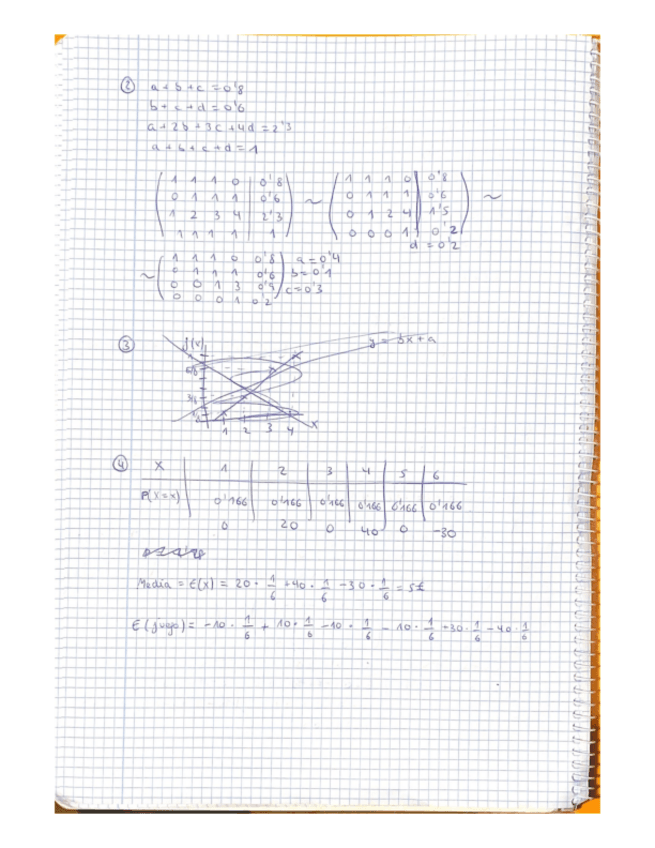 2 a + b + c = 0'8
b + c + d = 0'6
a + 2b + 3c + 4d = 2'3
a + b + c + d = 1
1 1 1 0 | 0'8 ~ 1 1 1 0 | 0'8 ~
0 1 1 1 | 0'6 0 1 1 1 | 0'6
1 2 3 4 | 2'3 0 1 2 4 | 1'5
1 1 1 1 | 1 0 0 0 1 | 0'2
d = 0'2
~ 1 1 1 0 0'8 a = 0'4
0 1 1 1 0'6 b = 0'1
0 0 1 3 0'9 c = 0'3
0 0 0 1 0'2
3 f(x) y = bx + a
1 2 3 4 x
4 X | 1 | 2 | 3 | 4 | 5 | 6
P(X=x) | 0'166 | 0'166 | 0'166 | 0'166 | 0'166 | 0'166
0 20 0 40 0 -30
Media = E(x) = 20 · 1/6 + 40 · 1/6 - 30 · 1/6 = 5€
E(juego) = -10 · 1/6 + 10 · 1/6 - 10 · 1/6 - 10 · 1/6 +30 · 1/6 - 40 · 1/6